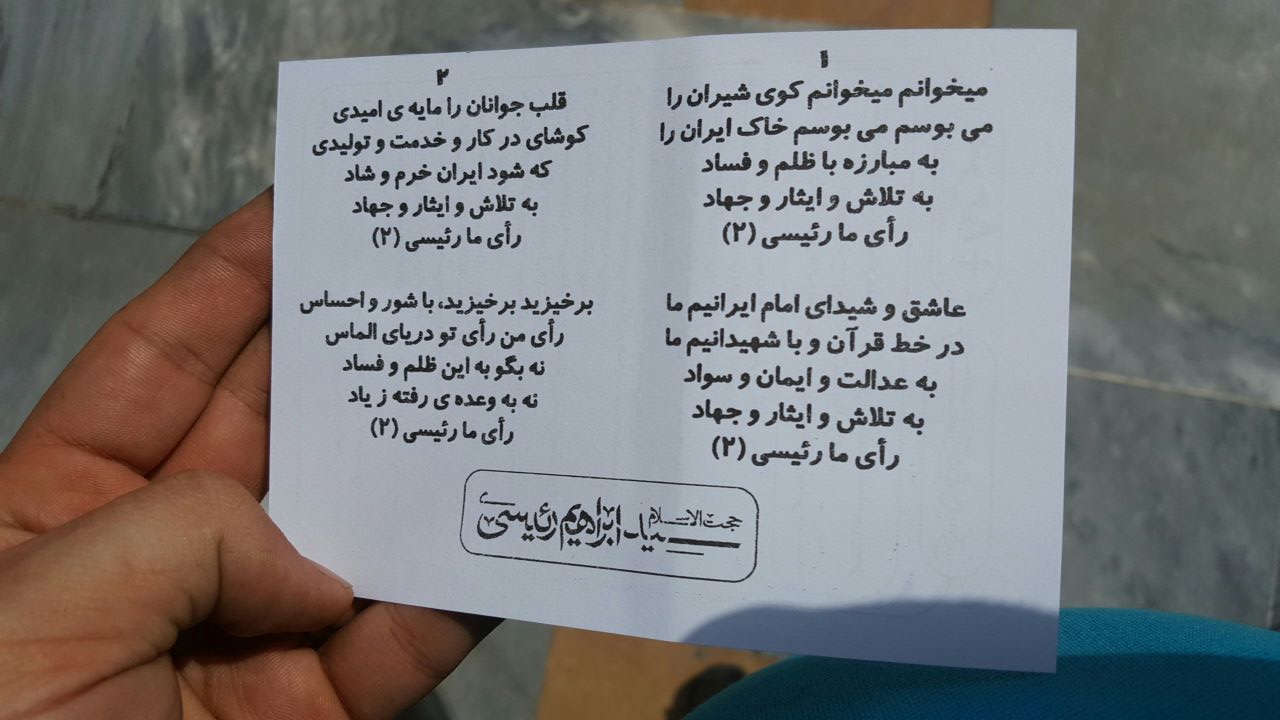 ۱
میخوانم میخوانم کوی شیران را
می بوسم می بوسم خاک ایران را
به مبارزه با ظلم و فساد
به تلاش و ایثار و جهاد
رأی ما رئیسی (۲)
عاشق و شیدای امام ایرانیم ما
در خط قرآن و با شهیدانیم ما
به عدالت و ایمان و سواد
به تلاش و ایثار و جهاد
رأی ما رئیسی (۲)
۲
قلب جوانان را مایه ی امیدی
کوشای در کار و خدمت و تولیدی
که شود ایران خرم و شاد
به تلاش و ایثار و جهاد
رأی ما رئیسی (۲)
برخیزید برخیزید، با شور و احساس
رأی من رأی تو دریای الماس
نه بگو به این ظلم و فساد
نه به وعده ی رفته ز یاد
رأی ما رئیسی (۲)
حجت الاسلام
سید ابراهیم رئیسی